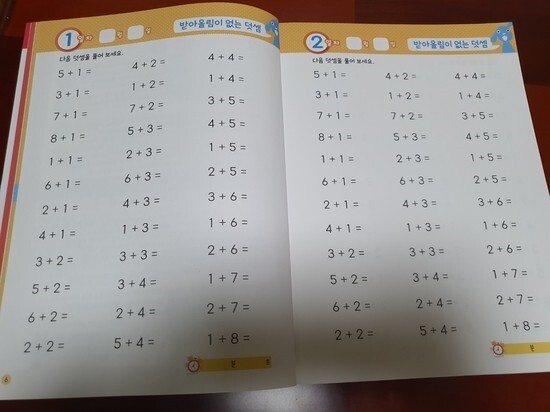 1 일차 월 일 받아올림이 없는 덧셈
다음 덧셈을 풀어 보세요.
5 + 1 = 4 + 2 = 4 + 4 =
3 + 1 = 1 + 2 = 1 + 4 =
7 + 1 = 7 + 2 = 3 + 5 =
8 + 1 = 5 + 3 = 4 + 5 =
1 + 1 = 2 + 3 = 1 + 5 =
6 + 1 = 6 + 3 = 2 + 5 =
2 + 1 = 4 + 4 = 3 + 6 =
4 + 1 = 1 + 3 = 1 + 6 =
3 + 2 = 3 + 3 = 2 + 6 =
5 + 2 = 3 + 4 = 1 + 7 =
6 + 2 = 2 + 4 = 2 + 7 =
2 + 2 = 5 + 4 = 1 + 8 =
분 초
6
2 일차 월 일 받아올림이 없는 덧셈
다음 덧셈을 풀어 보세요.
5 + 1 = 4 + 2 = 4 + 4 =
3 + 1 = 1 + 2 = 1 + 4 =
7 + 1 = 7 + 2 = 3 + 5 =
8 + 1 = 5 + 3 = 4 + 5 =
1 + 1 = 2 + 3 = 1 + 5 =
6 + 1 = 6 + 3 = 2 + 5 =
2 + 1 = 4 + 3 = 3 + 6 =
4 + 1 = 1 + 3 = 1 + 6 =
3 + 2 = 3 + 3 = 2 + 6 =
5 + 2 = 3 + 4 = 1 + 7 =
6 + 2 = 2 + 4 = 2 + 7 =
2 + 2 = 5 + 4 = 1 + 8 =
분